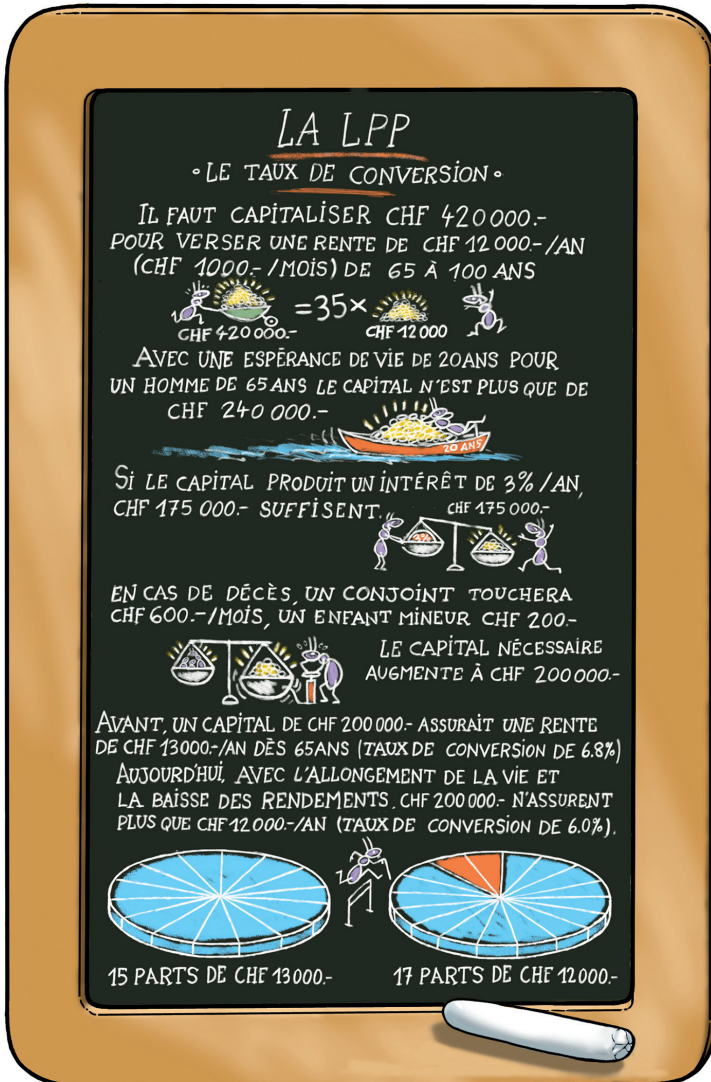 LA LPP
• LE TAUX DE CONVERSION •
IL FAUT CAPITALISER CHF 420000.-
POUR VERSER UNE RENTE DE CHF 12000.-/AN
(CHF 1000.-/MOIS) DE 65 À 100 ANS
=35×
CHF 420000.-
CHF 12000
AVEC UNE ESPÉRANCE DE VIE DE 20ANS POUR
UN HOMME DE 65ANS LE CAPITAL N'EST PLUS QUE DE
CHF 240000.-
20 ANS
SI LE CAPITAL PRODUIT UN INTÉRÊT DE 3%/AN,
CHF 175000.- SUFFISENT.
CHF 175000.-
EN CAS DE DÉCÈS, UN CONJOINT TOUCHERA
CHF 600.-/MOIS, UN ENFANT MINEUR CHF 200.-
LE CAPITAL NÉCESSAIRE
AUGMENTE À CHF 200000.-
AVANT, UN CAPITAL DE CHF 200000.- ASSURAIT UNE RENTE
DE CHF 13000.-/AN DÈS 65ANS (TAUX DE CONVERSION DE 6.8%)
AUJOURD'HUI, AVEC L'ALLONGEMENT DE LA VIE ET
LA BAISSE DES RENDEMENTS, CHF 200000.- N'ASSURENT
PLUS QUE CHF 12000.-/AN (TAUX DE CONVERSION DE 6.0%).
15 PARTS DE CHF 13000.-
17 PARTS DE CHF 12000.-